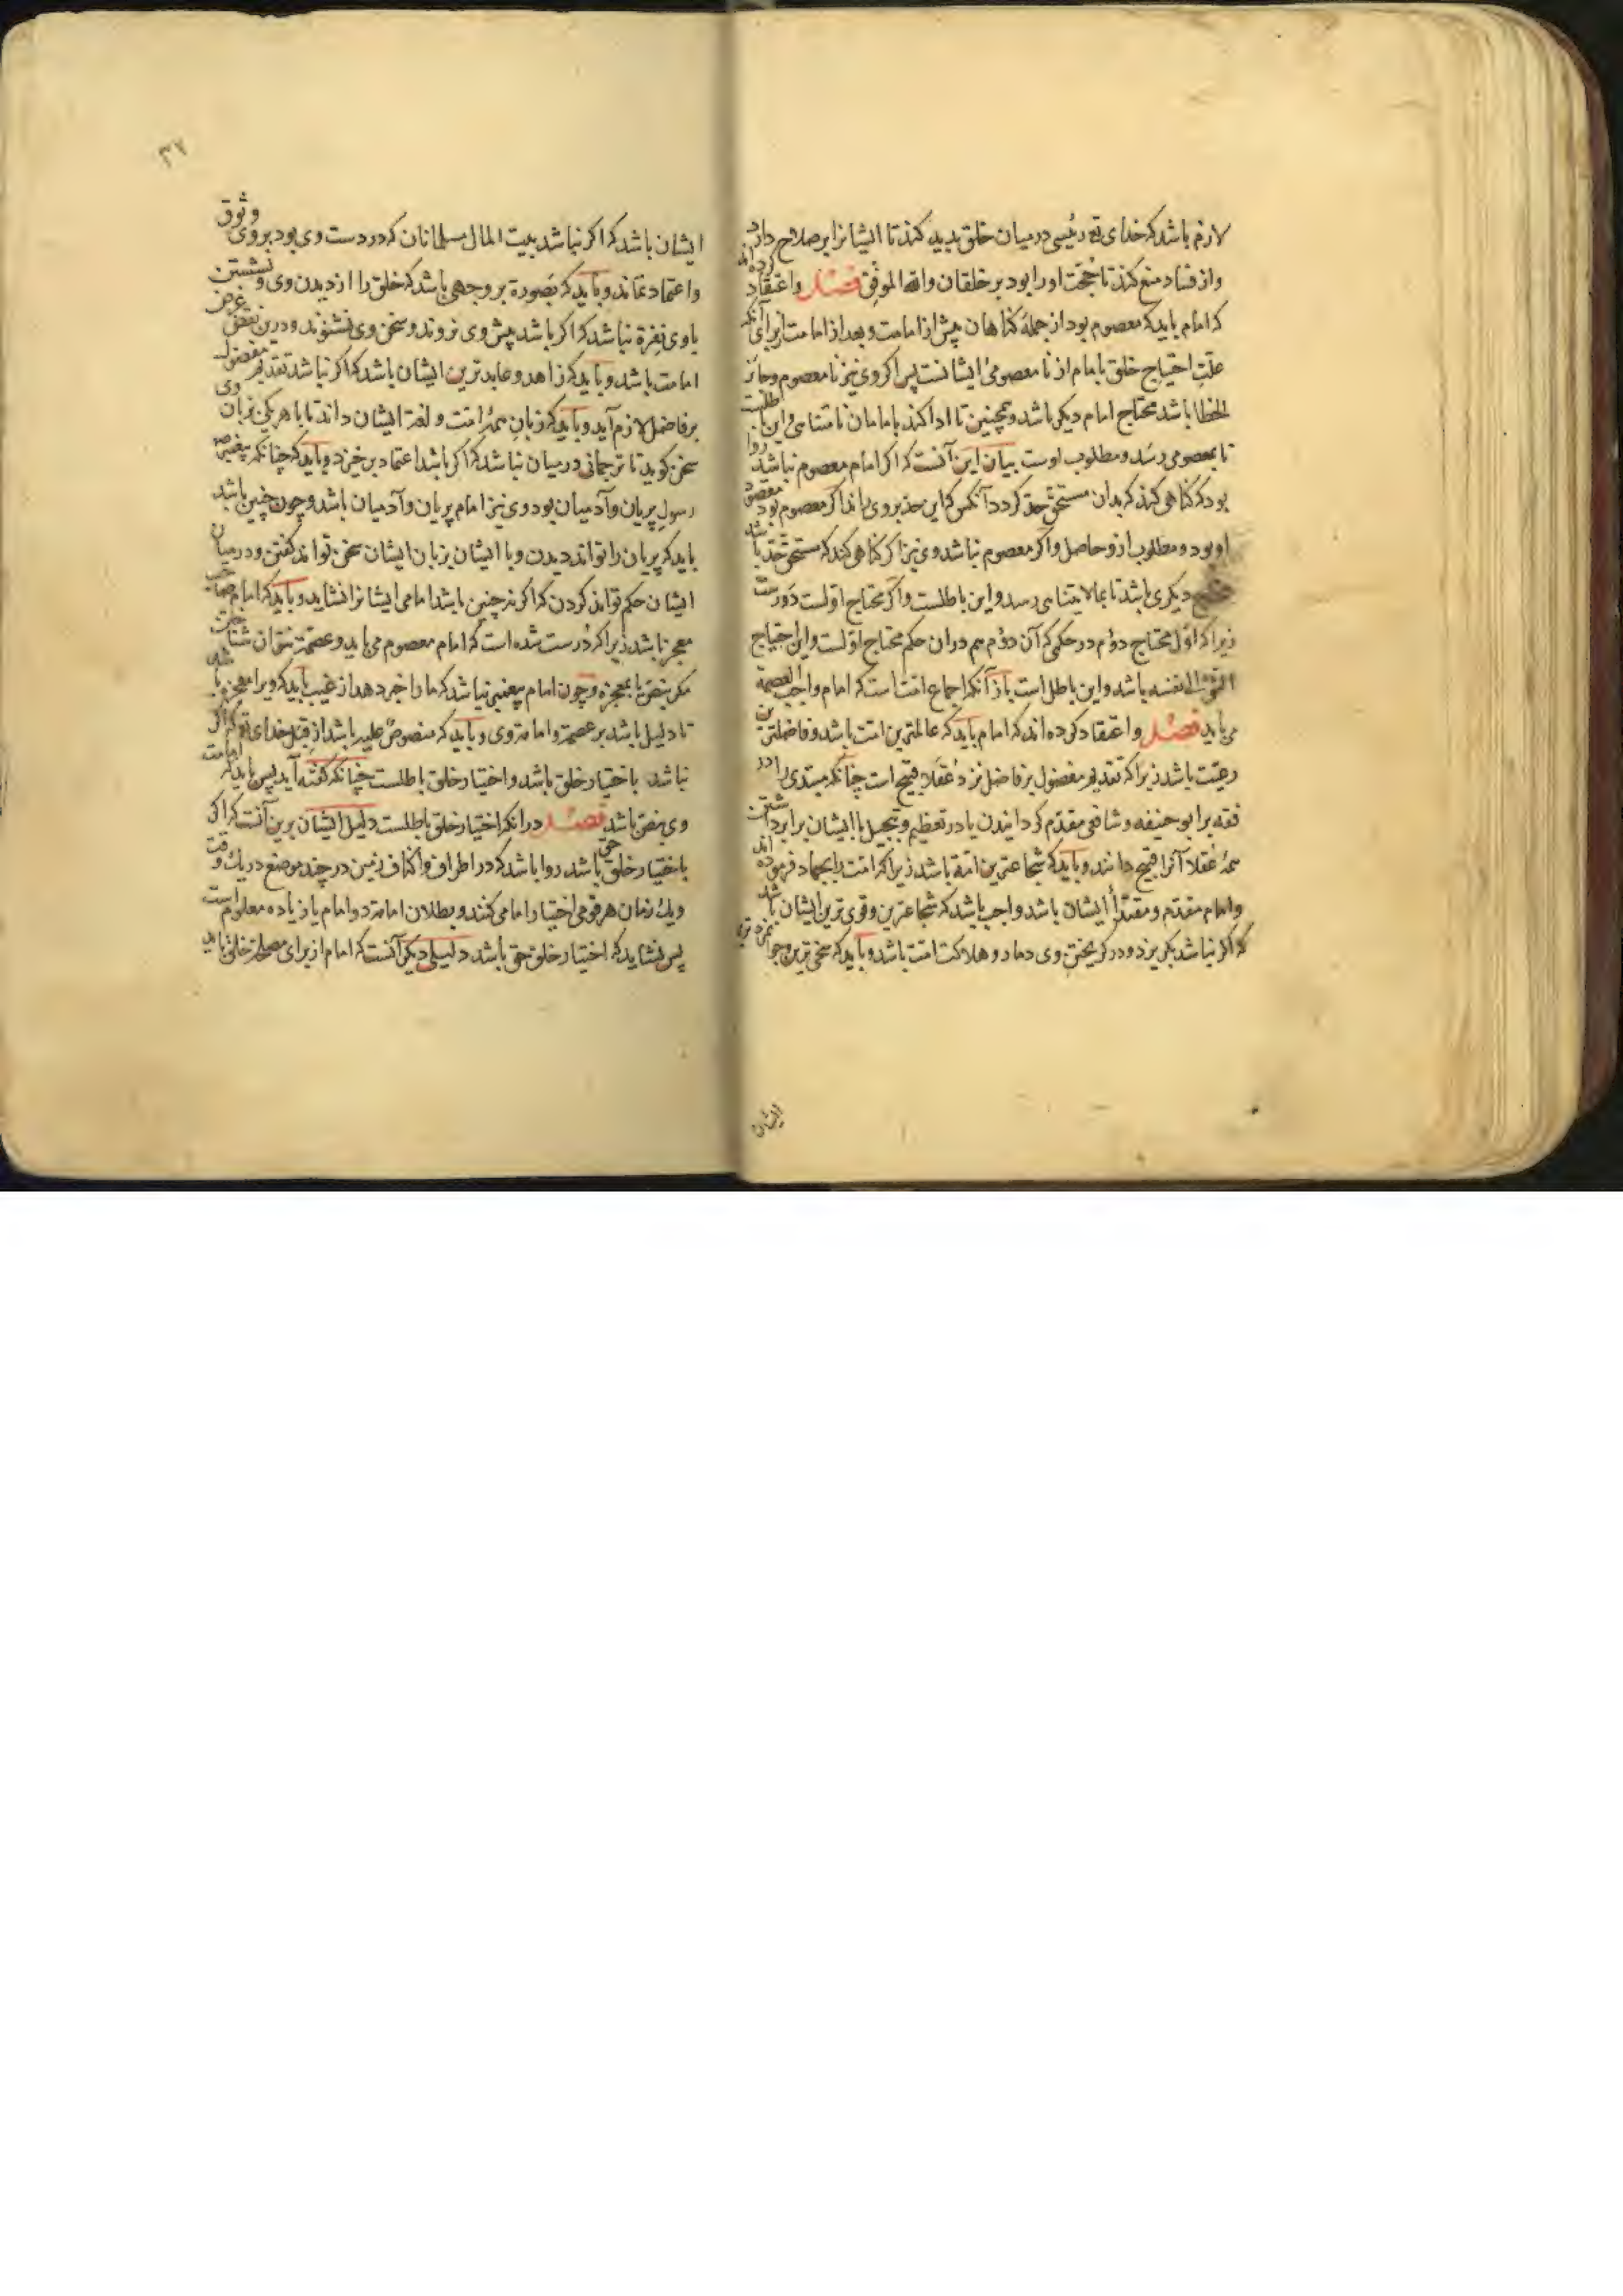 لازم باشد که خدای تع رئیسی در میان خلق پدید کند تا ایشانرا بر صلاح دارد
و از فساد منع کند تا حجّت او را بود بر خلقان والله الموفق فصل و اعتقاد کرده‌اند
که امام باید که معصوم بود از جملهٔ کناهان پیش از امامت و بعد از امامت از برای آنکه
علّت احتیاج خلق بامام از نامعصومی ایشانست پس اکر وی نیز نامعصوم و جائز
الخطا باشد محتاج امام دیکر باشد و همچنین تا ادا کند بامامان نامتناهی و این باطلست
تا بمعصومی رسد و مطلوب اوست بیان این آنست که اکر امام معصوم نباشد روا
بود که کناهی کند که بدان مستحق حد کردد آنکس که این حد بر وی راند اکر معصوم بود مقصود
او بود و مطلوب ازو حاصل و اکر معصوم نباشد وی نیز اکر کناهی کند که مستحق حد باشد
محتاج دیکری باشد تا بمالایتناهی رسد و این باطلست و اکر محتاج اوّلست دورست
زیرا که اوّل محتاج دوّم در حکمی که آن دوّم هم در آن حکم محتاج اوّلست و این احتیاج
الشیٔ الی نفسه باشد و این باطل است باز آنکه اجماع امّت است که امام واجب العصمة
می باید فصل و اعتقاد کرده اند که امام باید که عالمترین امّت باشد و فاضلترین
رعیّت باشد زیرا که تقدیم مفضول بر فاضل نزد عقلا قبیح است چنانکه مبتدی را در
فقه بر ابو حنیفه و شافعی مقدّم کردانیدن یا در تعظیم و تبجیل با ایشان برابر داشتن
همهٔ عقلا آنرا قبیح دانند و باید که شجاعترین امّة باشد زیرا که امّت را بجهاد فرموده‌اند
و امام مقدّم و مقتدأ ایشان باشد واجب باشد که شجاعترین و قوی ترین ایشان باشد
که اکر نباشد بکریزد و در کریختن وی دمار و هلاکت امّت باشد و باید که سخی ترین و جوانمردترین
ایشان
٣٢
ایشان باشد که اکر نباشد بیت المال مسلمانان که در دست وی بود بر وی وثوق
و اعتماد نماند و باید که بصورة بر وجهی باشد که خلق را از دیدن وی و نشستن
با وی نفرة نباشد که اکر باشد پیش وی نروند و سخن وی نشنوند و درین نقض غرض
امامت باشد و باید که زاهد و عابدترین ایشان باشد که اکر نباشد تقدیم مفضول
بر فاضل لازم آید و باید که زبان همهٔ امّت و لغة ایشان داند تا با هر یکی بزبان وی
سخن کوید تا ترجمانی در میان نباشد که اکر باشد اعتماد برخیزد و باید که چنانکه پیغمبر ص
رسول پریان و آدمیان بود وی نیز امام پریان و آدمیان باشد و چون چنین باشد
باید که پریان را تواند دیدن و با ایشان بزبان ایشان سخن تواند کفتن و در میان
ایشان حکم تواند کردن که اکر نه چنین باشد امامی ایشانرا نشاید و باید که امام صاحب
معجز باشد زیرا که درست شده است که امام معصوم می باید و عصمة نتوان شناختن
مکر بنصّ یا بمعجزه و چون امام پیغمبر نباشد که ما را خبر دهد از غیب باید که ویرا معجزه باشد
تا دلیل باشد بر عصمة و امامة وی و باید که منصوصٌ علیه باشد از قبل خدای تع که اکر
نباشد باختیار خلق باشد و اختیار خلق باطلست چنانکه کفته آید پس باید که امامت
وی بنصّ باشد فصل در آنکه اختیار خلق باطلست دلیل ایشان برین آنست که اکر
باختیار خلق حق باشد روا باشد که در اطراف و اکناف زمین در چند موضع در یک وقت
و یک زمان هر قومی اختیار امامی کنند و بطلان امامة دو امام یا زیاده معلوم است
پس نشاید که اختیار خلق حق باشد دلیلی دیکر آنست که امام از برای مصلحة خلق باید